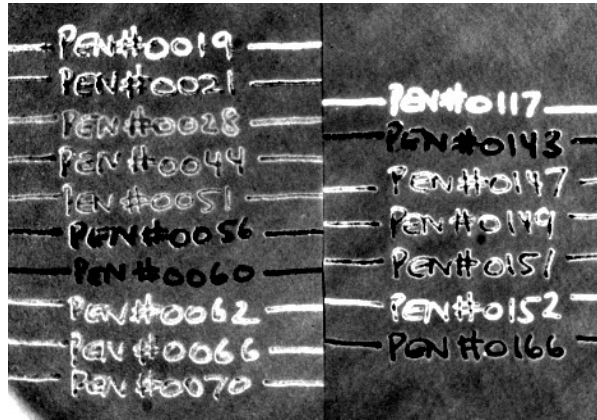 PEN#0019
PEN#0021
PEN#0028
PEN#0044
PEN#0051
PEN#0056
PEN#0060
PEN#0062
PEN#0066
PEN#0070
PEN#0117
PEN#0143
PEN#0147
PEN#0149
PEN#0151
PEN#0152
PEN#0166